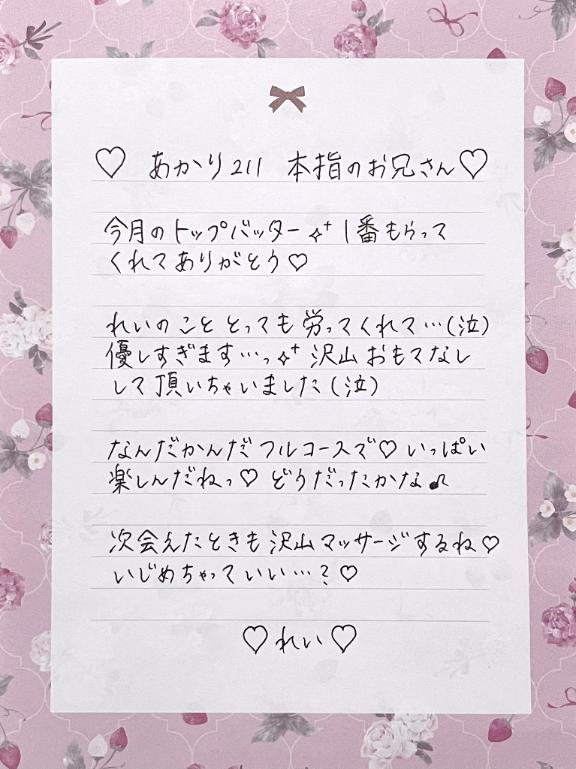 ♡ あかり211 本指のお兄さん♡
今月のトップバッター✧⁺ 1番もらって
くれてありがとう♡
れいのこと とっても 労ってくれて…(泣)
優しすぎます…っ✧⁺ 沢山おもてなし
して頂いちゃいました(泣)
なんだかんだ フルコースで♡ いっぱい
楽しんだねっ♡ どうだったかな♫
次会えたときも 沢山マッサージするね♡
いじめちゃっていい…？♡
♡れい♡